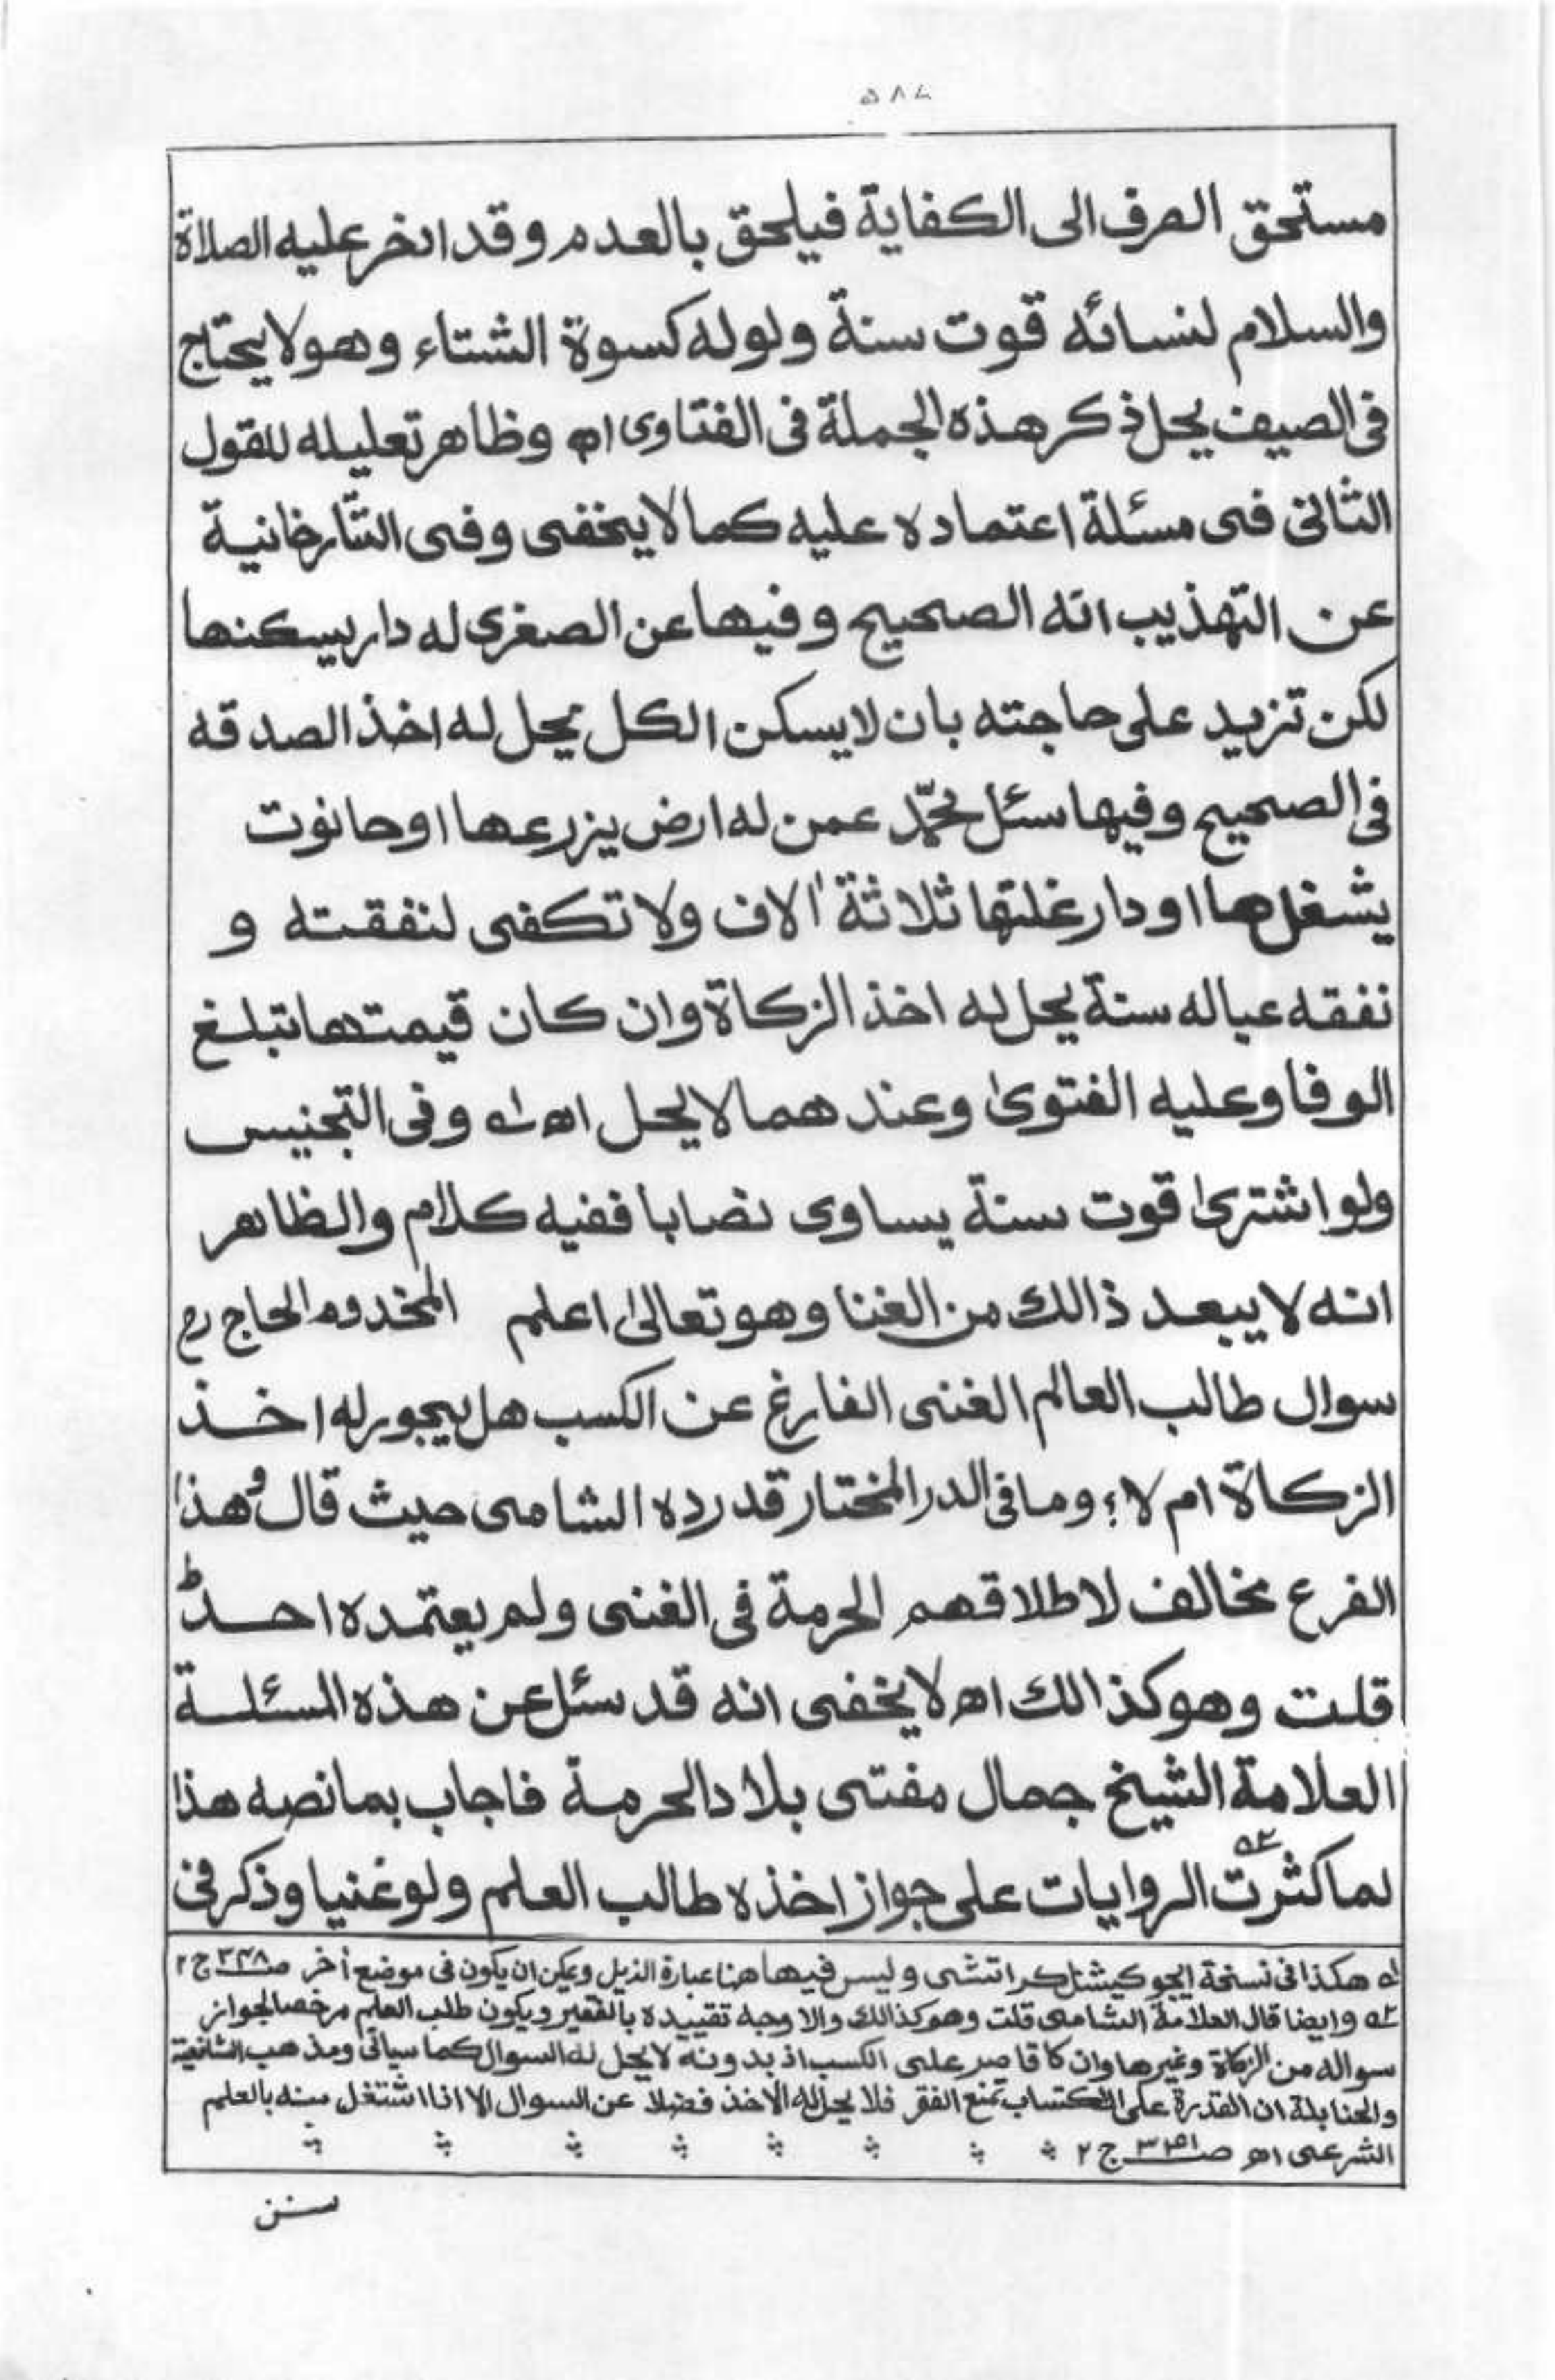 ۵۸۷
مستحق الصرف الى الكفاية فيلحق بالعدم وقد ادخر عليه الصلاة
والسلام لنسائه قوت سنة ولو له كسوة الشتاء وهو لا يحتاج
فى الصيف يحل ذكر هذه الجملة فى الفتاوى اھ وظاهر تعليله للقول
الثانى فى مسئلة اعتماده عليه كما لا يخفى وفى التتارخانية
عن التهذيب انه الصحيح وفيها عن الصغرى له دار يسكنها
لكن تزيد على حاجته بان لا يسكن الكل يحل له اخذ الصدقه
فى الصحيح وفيها سئل محمّد عمن له ارض يزرعها او حانوت
يشغلها او دار غلتها ثلاثة اٰلاف ولا تكفى لنفقته و
نفقه عياله سنة يحل له اخذ الزكاة وان كان قيمتها تبلغ
الوفا وعليه الفتوىٰ وعندهما لا يحل اھ لـه وفى التجنيس
ولو اشترىٰ قوت سنة يساوى نصابا ففيه كلام والظاهر
انه لا يبعد ذالك من الغنا وهو تعالىٰ اعلم المخدوم الحاج رح
سوال طالب العالم الغنى الفارغ عن الكسب هل يجور له اخذ
الزكاة ام لا؟ وما فى الدر المختار قد رده الشامى حيث قال وهذا
الفرع مخالف لاطلاقهم الحرمة فى الغنى ولم يعتمده احد ط
قلت وهو كذالك اھ لا يخفى انه قد سئل عن هذه المسئلة
العلامة الشيخ جمال مفتى بلاد الحرمة فاجاب بما نصه هذا
لما كثرت ٢ه الروايات على جواز اخذه طالب العلم ولو غنيا وذكر فى
له هكذا فى نسخة ايجوكيشنل كراتشى وليس فيها هنا عبارة الذيل ويمكن ان يكون فى موضع أخر صـ ٣٤٨ ج ٢
٢ه وايضا قال العلامة الشامى قلت وهو كذالك والاوجه تقييده بالفقير ويكون طلب العلم مرخصا لجواز
سواله من الزكاة وغيرها وان كا قاصر على الكسب اذ بدونه لا يحل له السوال كما سياتى ومذهب الشافعية
والحنابلة ان القدرة على الاكتساب تمنع الفقر فلا يحل له الاخذ فضلا عن السوال الا اذا اشتغل منه بالعلم
الشرعى اھ صـ ج ٢
سنن